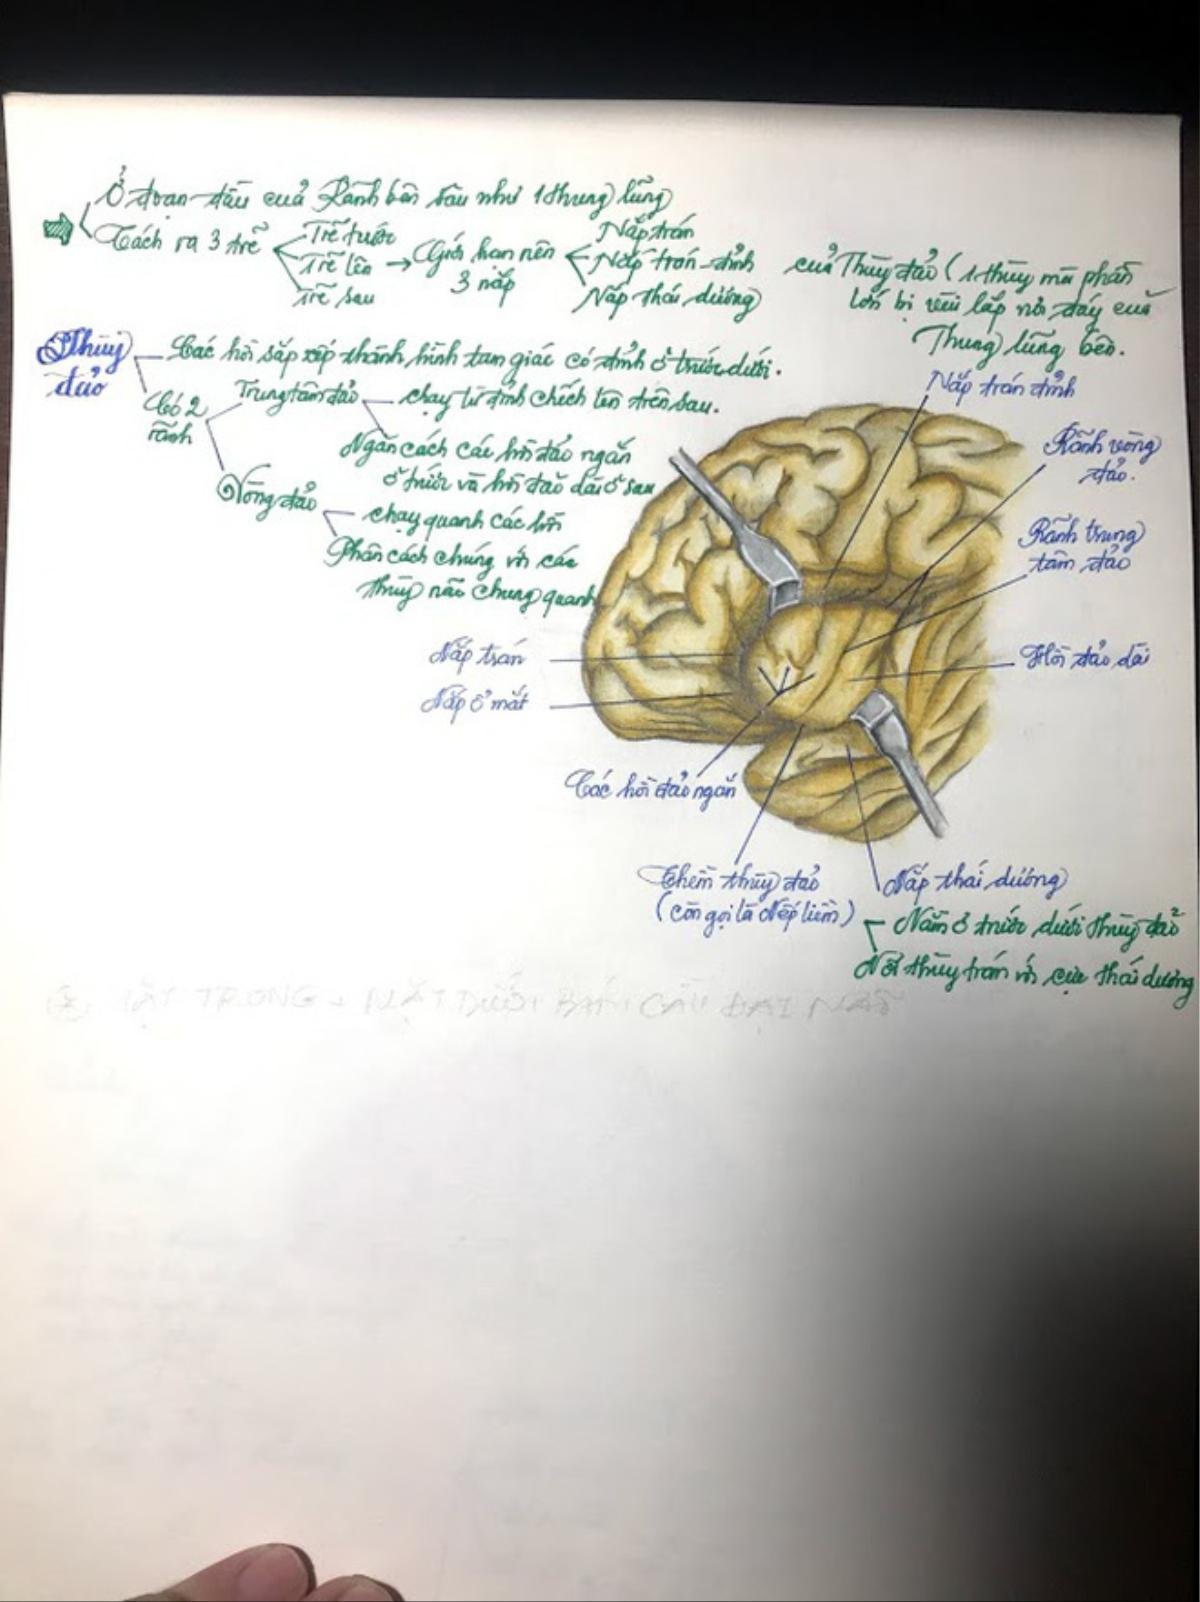 Ở đoạn đầu của Rãnh bên sâu như 1 thung lũng
Tách ra 3 trẽ
Trẽ trước
Trẽ lên
Trẽ sau
→ Giới hạn nên
3 nắp
Nắp trán
Nắp trán-đỉnh
Nắp thái dương
của Thùy đảo (1 thùy mà phần
lớn bị vùi lấp nơi đáy của
Thung lũng bên.
Thùy
đảo
Các hồi sắp xếp thành hình tam giác có đỉnh ở trước dưới.
Có 2
rãnh
Trung tâm đảo
chạy từ đỉnh chếch lên trên sau.
Ngăn cách các hồi đảo ngắn
ở trước và hồi đảo dài ở sau
Vòng đảo
chạy quanh các hồi
Phân cách chúng với các
thùy não chung quanh
Nắp trán đỉnh
Rãnh vòng
đảo.
Rãnh trung
tâm đảo
Hồi đảo dài
Nắp trán
Nắp ổ mắt
Các hồi đảo ngắn
Thềm thùy đảo
(còn gọi là Nếp liềm)
Nắp thái dương
Nằm ở trước dưới thùy đảo
Nối thùy trán với cực thái dương
TRONG - MẶT DƯỚI BÁN CẦU ĐẠI NÃO